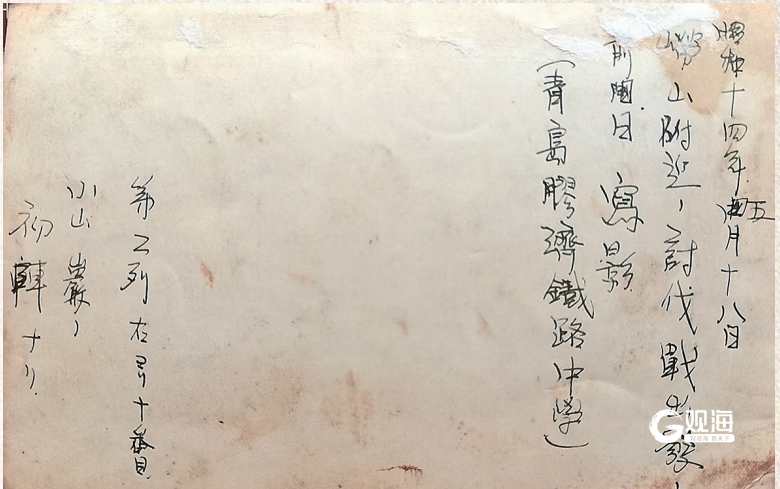 昭和十四年五月十八日
嶗山附近ノ討伐戦出発ノ
前日 寫影
(青島膠濟鐵路中学)
第二列右ヨリ十番目
小山 巌ノ
初陣ナリ.
G观海